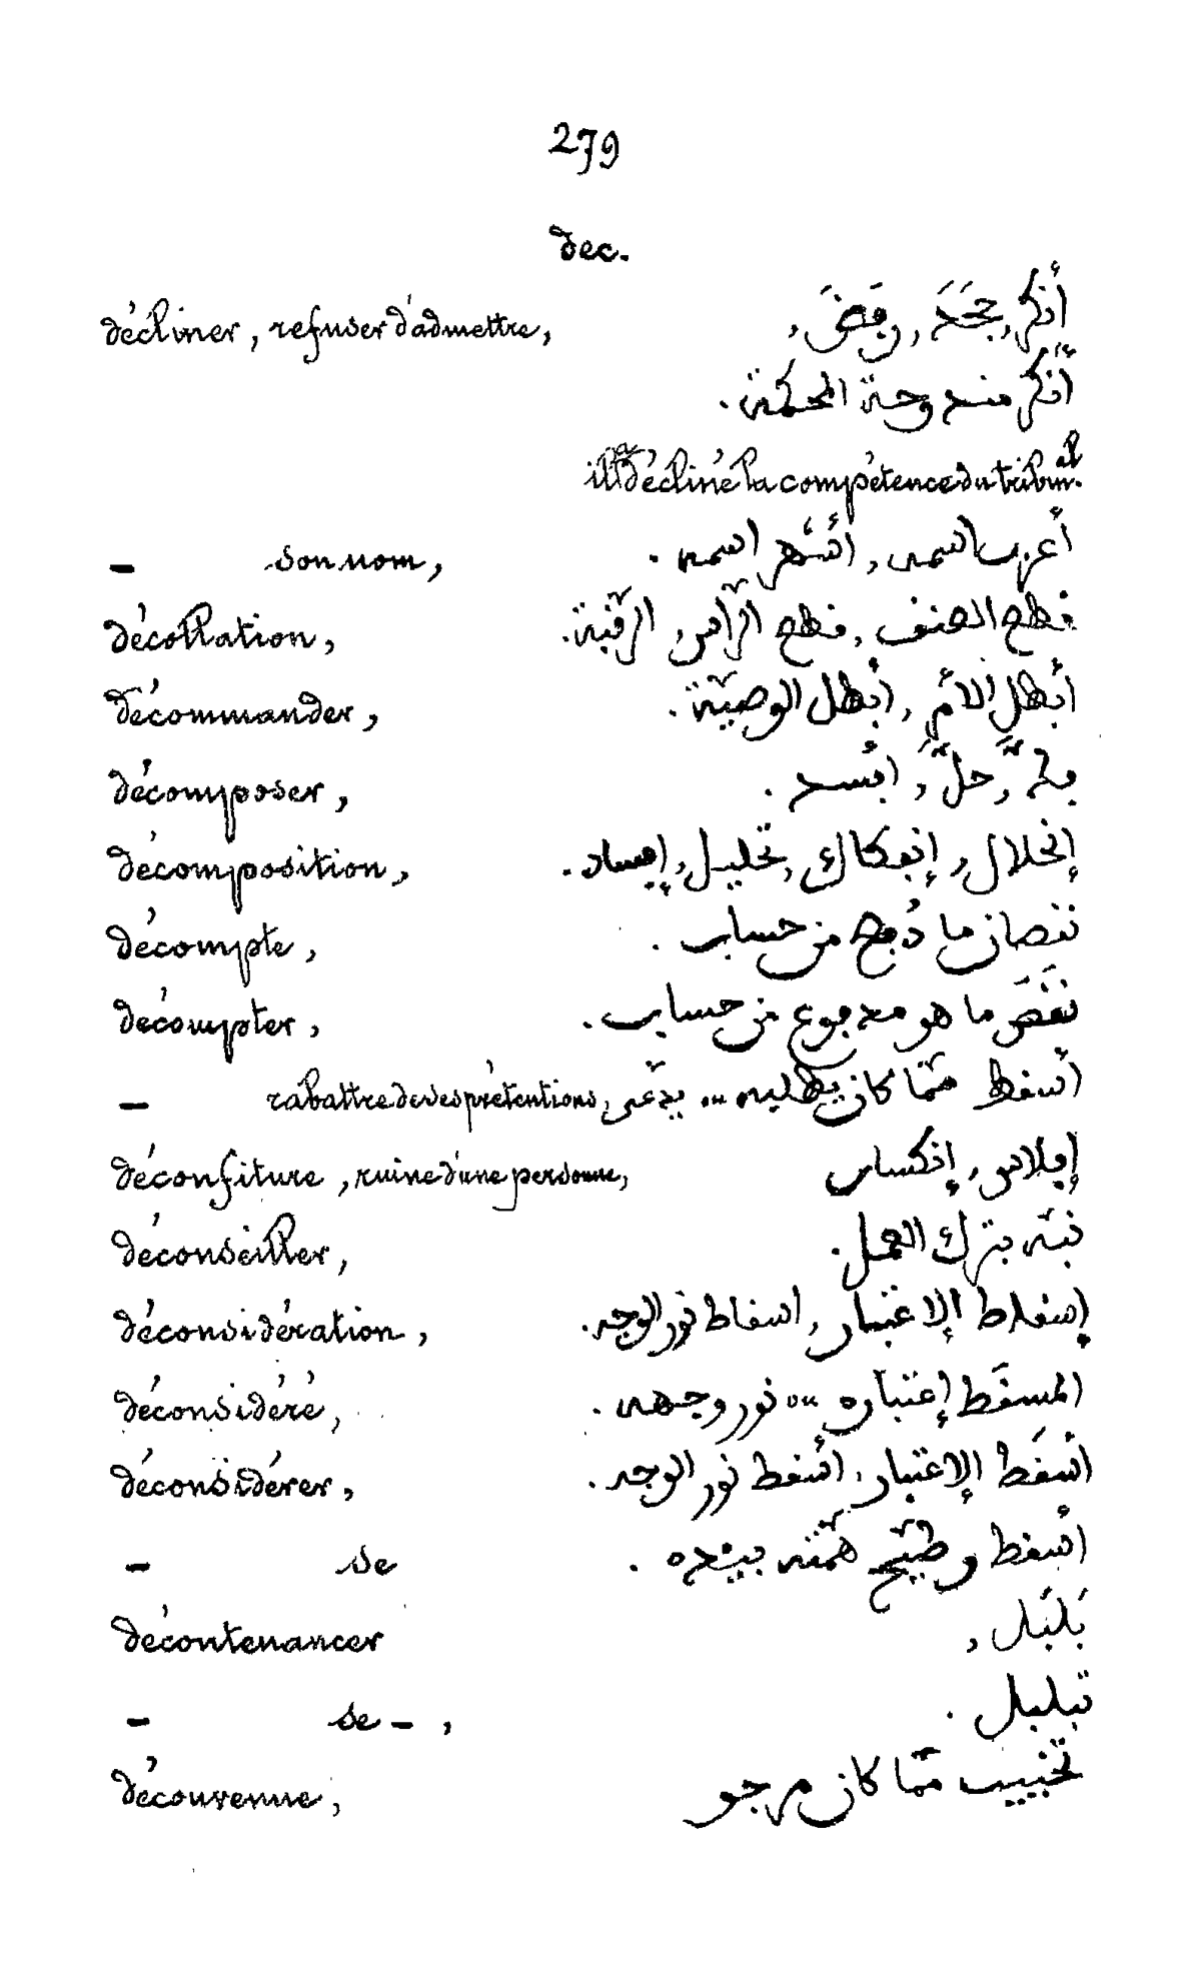 279
dec.
décliner, refuser d'admettre, أَنْكر, جَحَدَ, رفَضَ,
أنكر مندوحة المحكمة.
il a décliné la compétence du tribunal.
– son nom, أعرب اسمه, أشهر اسمه.
décollation, قطع العنف, قطع الرّأس, الرّقبة.
décommander, أبطل الأمر, أبطل الوصيّة.
décomposer, فكّ, حلّ, أفسد.
décomposition, إنحلال, إنفكاك, تحليل, إفساد.
décompte, نقصان ما دُفع من حساب.
décompter, نَقَصَ ما هو مدفوع من حساب.
– rabattre de ses prétentions, أسقط ممّا كان يطلبه ... يدّعى
déconfiture, ruine d'une personne, إفلاس, إنكسار
déconseiller, نبّه بترك العمل.
déconsidération, إسقاط الإعتبار, اسقاط نور الوجه.
déconsidéré, المسقَط إعتباره ou نور وجهه.
déconsidérer, أسقَط الإعتبار, أسقط نور الوجه.
– se أسقط وطيّح همّته بيده.
décontenancer بَلبَل,
– se –, تبلبل.
déconvenue, تخييب ممّا كان مرجو